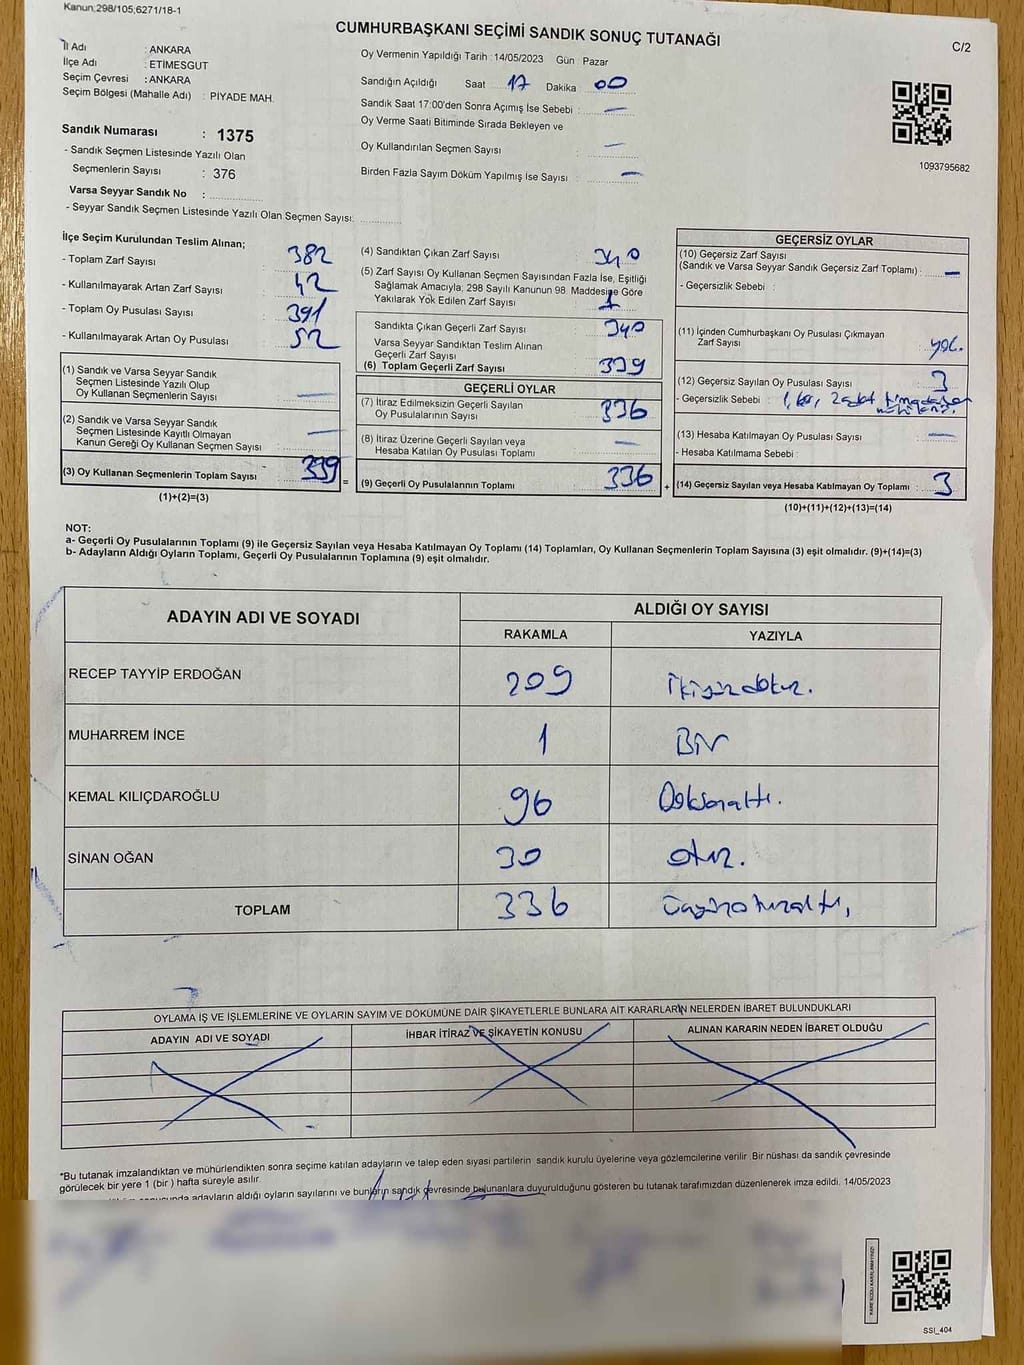 Kanun;298/105;6271/18-1
CUMHURBAŞKANI SEÇİMİ SANDIK SONUÇ TUTANAĞI
C/2
İl Adı : ANKARA
İlçe Adı : ETİMESGUT
Seçim Çevresi : ANKARA
Seçim Bölgesi (Mahalle Adı) : PİYADE MAH.
Sandık Numarası : 1375
- Sandık Seçmen Listesinde Yazılı Olan
Seçmenlerin Sayısı : 376
Varsa Seyyar Sandık No :
- Seyyar Sandık Seçmen Listesinde Yazılı Olan Seçmen Sayısı:
Oy Vermenin Yapıldığı Tarih : 14/05/2023 Gün Pazar
Sandığın Açıldığı Saat 17 Dakika 00
Sandık Saat 17:00'den Sonra Açımış İse Sebebi : —
Oy Verme Saati Bitiminde Sırada Bekleyen ve
Oy Kullandırılan Seçmen Sayısı : —
Birden Fazla Sayım Döküm Yapılmış İse Sayısı : —
1093795682
İlçe Seçim Kurulundan Teslim Alınan;
- Toplam Zarf Sayısı : 382
- Kullanılmayarak Artan Zarf Sayısı : 42
- Toplam Oy Pusulası Sayısı : 391
- Kullanılmayarak Artan Oy Pusulası : 52
(1) Sandık ve Varsa Seyyar Sandık
Seçmen Listesinde Yazılı Olup
Oy Kullanan Seçmenlerin Sayısı : —
(2) Sandık ve Varsa Seyyar Sandık
Seçmen Listesinde Kayıtlı Olmayan
Kanun Gereği Oy Kullanan Seçmen Sayısı : —
(3) Oy Kullanan Seçmenlerin Toplam Sayısı : 339 =
(1)+(2)=(3)
(4) Sandıktan Çıkan Zarf Sayısı : 340
(5) Zarf Sayısı Oy Kullanan Seçmen Sayısından Fazla İse, Eşitliği
Sağlamak Amacıyla; 298 Sayılı Kanunun 98. Maddesine Göre
Yakılarak Yok Edilen Zarf Sayısı : 1
Sandıkta Çıkan Geçerli Zarf Sayısı : 340
Varsa Seyyar Sandıktan Teslim Alınan
Geçerli Zarf Sayısı :
(6) Toplam Geçerli Zarf Sayısı : 339
GEÇERLİ OYLAR
(7) İtiraz Edilmeksizin Geçerli Sayılan
Oy Pusulalarının Sayısı : 336
(8) İtiraz Üzerine Geçerli Sayılan veya
Hesaba Katılan Oy Pusulası Toplamı : —
(9) Geçerli Oy Pusulalarının Toplamı : 336 +
GEÇERSİZ OYLAR
(10) Geçersiz Zarf Sayısı
(Sandık ve Varsa Seyyar Sandık Geçersiz Zarf Toplamı) : —
- Geçersizlik Sebebi :
(11) İçinden Cumhurbaşkanı Oy Pusulası Çıkmayan
Zarf Sayısı : yok.
(12) Geçersiz Sayılan Oy Pusulası Sayısı : 3
- Geçersizlik Sebebi : 2 adet
(13) Hesaba Katılmayan Oy Pusulası Sayısı : —
- Hesaba Katılmama Sebebi :
(14) Geçersiz Sayılan veya Hesaba Katılmayan Oy Toplamı : 3
(10)+(11)+(12)+(13)=(14)
NOT:
a- Geçerli Oy Pusulalarının Toplamı (9) ile Geçersiz Sayılan veya Hesaba Katılmayan Oy Toplamı (14) Toplamları, Oy Kullanan Seçmenlerin Toplam Sayısına (3) eşit olmalıdır. (9)+(14)=(3)
b- Adayların Aldığı Oyların Toplamı, Geçerli Oy Pusulalarının Toplamına (9) eşit olmalıdır.
ADAYIN ADI VE SOYADI
ALDIĞI OY SAYISI
RAKAMLA YAZIYLA
RECEP TAYYİP ERDOĞAN 209 ikiyüzdokuz.
MUHARREM İNCE 1 Bir
KEMAL KILIÇDAROĞLU 96 Doksanaltı.
SİNAN OĞAN 30 otuz.
TOPLAM 336 üçyüzotuzaltı,
OYLAMA İŞ VE İŞLEMLERİNE VE OYLARIN SAYIM VE DÖKÜMÜNE DAİR ŞİKAYETLERLE BUNLARA AİT KARARLARIN NELERDEN İBARET BULUNDUKLARI
ADAYIN ADI VE SOYADI İHBAR İTİRAZ VE ŞİKAYETİN KONUSU ALINAN KARARIN NEDEN İBARET OLDUĞU
*Bu tutanak imzalandıktan ve mühürlendikten sonra seçime katılan adayların ve talep eden siyasi partilerin sandık kurulu üyelerine veya gözlemcilerine verilir. Bir nüshası da sandık çevresinde
görülecek bir yere 1 (bir ) hafta süreyle asılır.
adayların aldığı oyların sayılarını ve bunların sandık çevresinde bulunanlara duyurulduğunu gösteren bu tutanak tarafımızdan düzenlenerek imza edildi. 14/05/2023
SSI_404